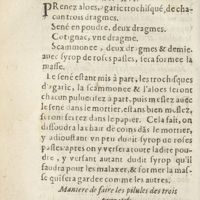 PRenez aloes, agaric trochisqué, de chacun
trois dragmes.
Sené en poudre, deux dragmes.
Cotignac, vne dragme.
Scammonee, deux dragmes & demie,
auec syrop de roses pasles, sera formee la
masse.
Le sené estant mis à part, les trochisques
d'agaric, la scammonee & l'aloes seront
chacun puluerizez à part, puis meslez auec
le sené dans le mortier, estans bien meslez,
seront ostez dans le papier. Cela fait, on
dissoudra las hair de coins dãs le mortier, y
adioustant vn peu dudit syrop de roses
pasles: apres on y versera toute ladite poudre
, y versant autant dudit syrop qu'il
faudra pour les malaxer, & former la masse
qui sera gardee comme les autres.
Maniere de faire les pilules des trois